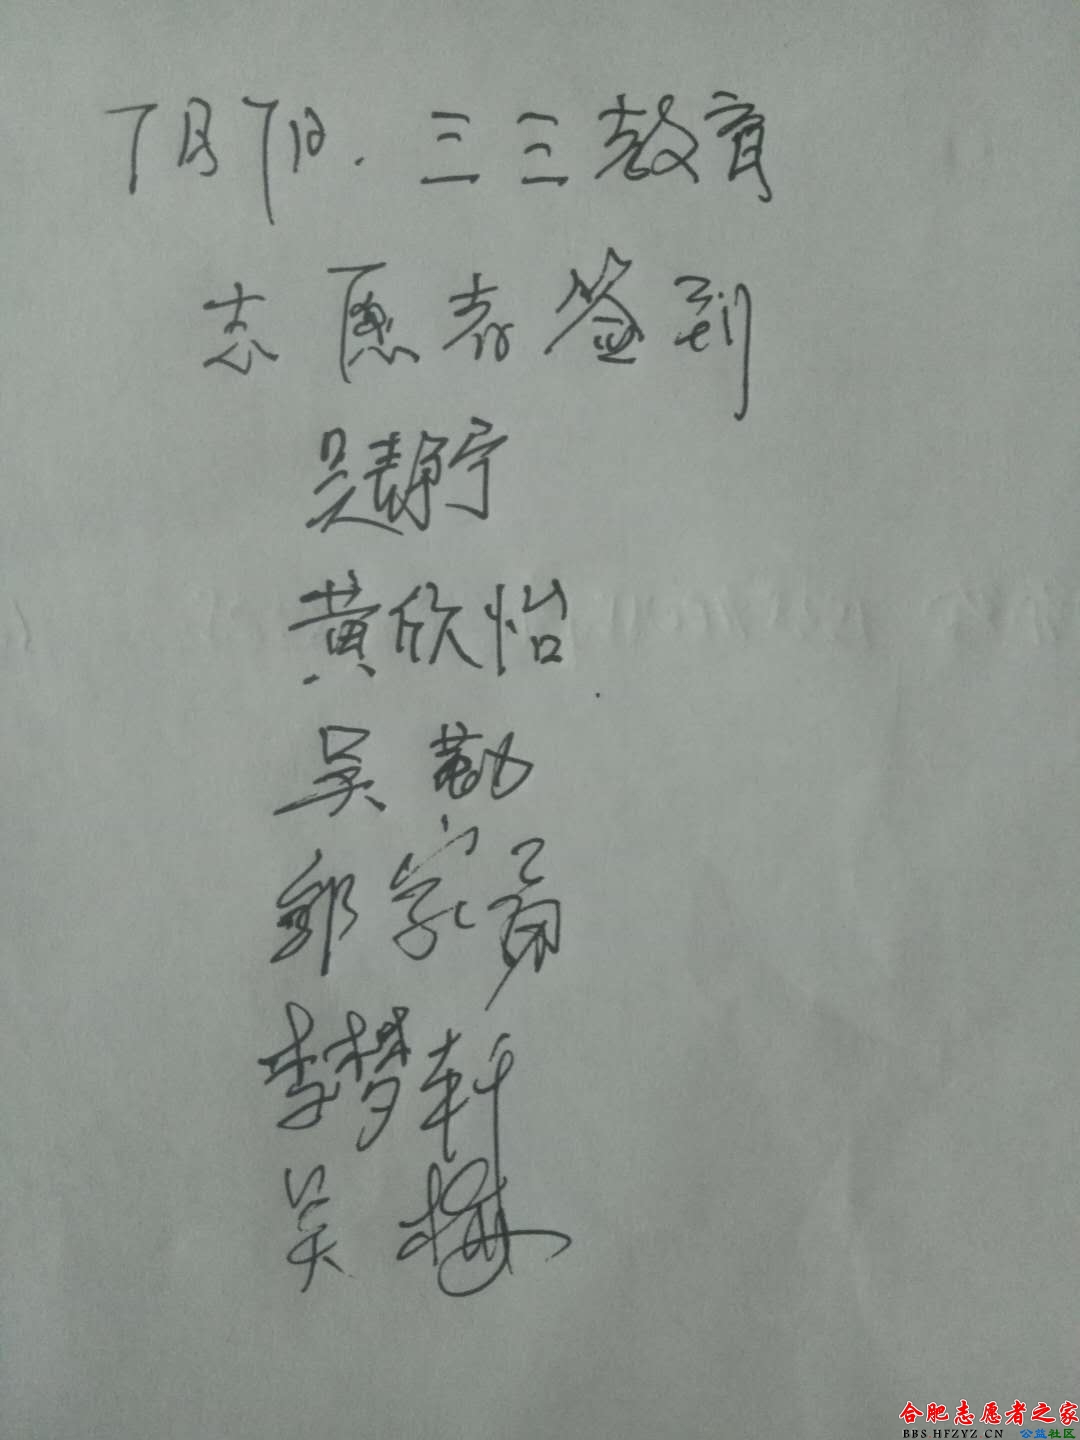 7月7日.三三教育
志愿者签到
吴静宁
黄欣怡
吴勤
郭家勇
李梦轩
吴梅
合肥志愿者之家
BBS.HFZYZ.CN 公益社区